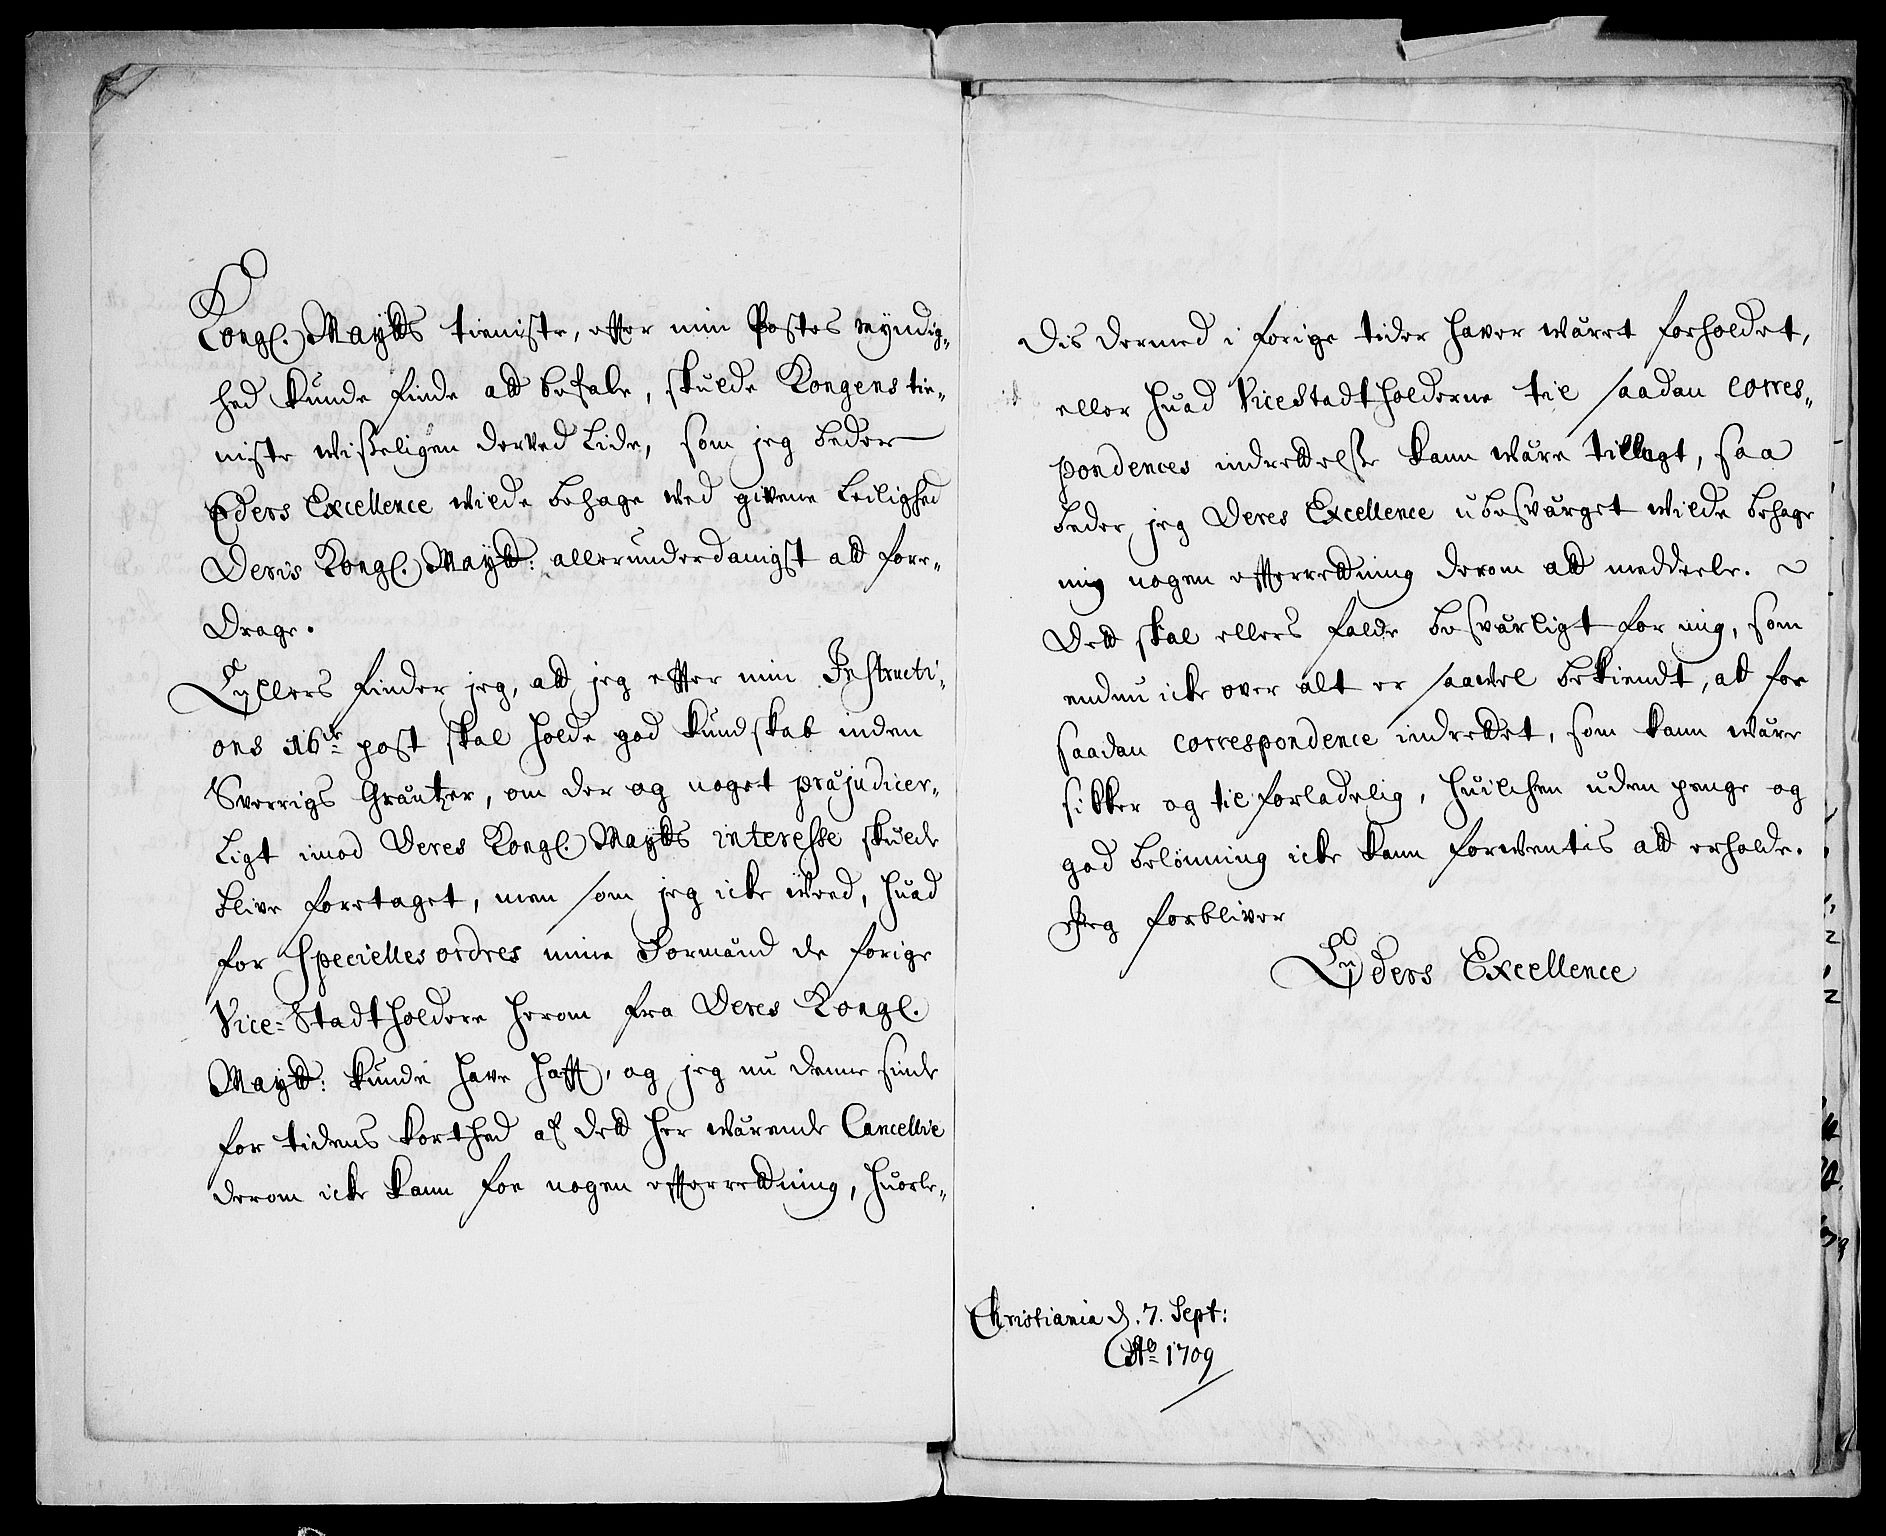 Kongl. Maytts tieniste, efter min Postes myndig-
hed kunde finde att befale, skulde Kongens tie-
niste wisseligen derved Lide, som jeg beder
Eders Excellence wilde behage ved givene Leilighed
Deris Kongl. Maytt: allerunderdanigst att fore-
Drage.
Ellers finder jeg, att jeg efter min Instructi-
ons 16de post skal holde god kundskab inden
Sverrigs Gräntzer, om der og noget præjudicer-
Ligt imod Deres Kongl. Maytts interesse skulde
blive foretaget, men som jeg icke weed, huad
for Specielles ordres mine Formänd de forige
Vice-Stadtholdere herom fra Deres Kongl.
Maytt: kunde have hafft, og jeg nu denne sinde
for tidens korthed af dett her wärende Cancellie
derom icke kann foe nogen efterrettning, huorle-
dis dermed i forige tider haver wäret forholdet,
eller huad Vicestadtholderne til saadan corres-
pondences indrettelse kann wäre tillagt, saa
beder jeg Deres Excellence ubesvärget wilde behage
mig nogen efterrettning derom att meddeele.
Dett skal ellers falde besvärligt for mig, som
endnu icke over alt er saavel bekiendt, at foe
saadan correspondence indrettet, som kann wäre
sikker og til forladelig, huilchen uden penge og
god belönning icke kann forventis att erholde.
Jeg forbliver
Eders Excellence
Christiania d. 7. Sept:
Ao 1709